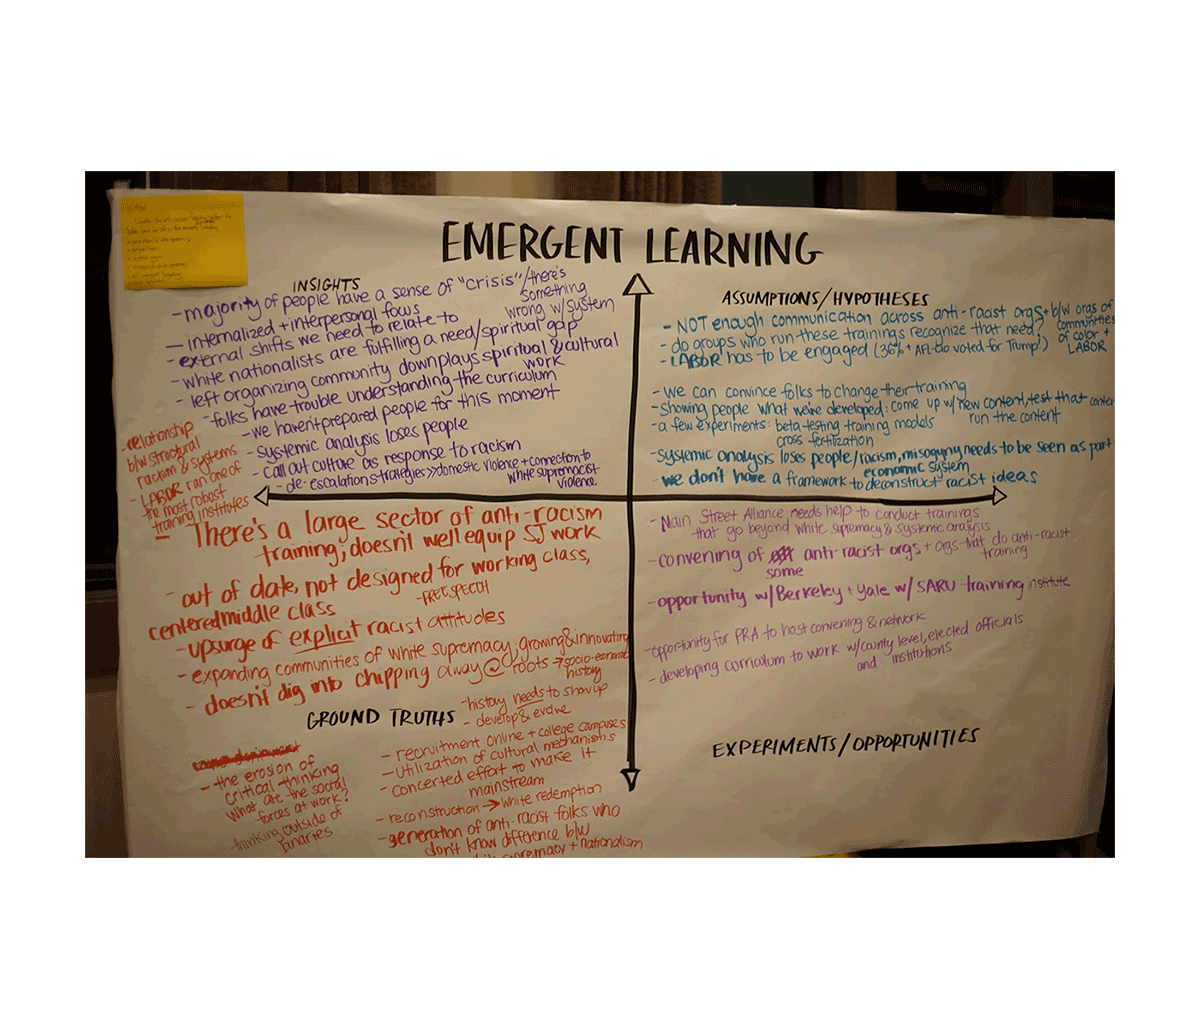 EMERGENT LEARNING
INSIGHTS
- majority of people have a sense of "crisis"/there's
something
wrong w/system
- internalized + interpersonal focus
- external shifts we need to relate to
- white nationalists are fulfilling a need/spiritual gap
- left organizing community downplays spiritual & cultural
work
- folks have trouble understanding the curriculum
- we haven't prepared people for this moment
- systemic analysis loses people
- call out culture as response to racism
- de-escalation strategies >> domestic violence + connection to
white supremacist
violence
- relationship
b/w structural
racism & systems
- LABOR ran one of
the most robust
training institutes
ASSUMPTIONS/HYPOTHESES
- NOT enough communication across anti-racist orgs + b/w orgs of
communities
of color +
LABOR
- do groups who run these trainings recognize that need?
- LABOR has to be engaged (36% + AFL-do voted for Trump!)
- we can convince folks to change their training
- showing people what we've developed: come up w/ new content, test that content
run the content
- a few experiments: beta testing training models
cross fertilization
- systemic analysis loses people/racism, misogyny needs to be seen as part
economic system
- we don't have a framework to deconstruct racist ideas
- There's a large sector of anti-racism
training; doesn't well equip SJ work
- out of date, not designed for working class,
centered middle class
- FREE SPEECH
- upsurge of explicit racist attitudes
- expanding communities of white supremacy; growing & innovating
- doesn't dig into chipping away @ roots → socio-economic
history
- history needs to show up
- develop & evolve
GROUND TRUTHS
- the erosion of
critical thinking
what are the social
forces at work?
- thinking outside of
binaries
- recruitment online + college campuses
- utilization of cultural mechanisms
- concerted effort to make it
mainstream
- reconstruction → white redemption
- generation of anti-racist folks who
don't know difference b/w
supremacy + nationalism
- Main Street Alliance needs help to conduct trainings
that go beyond white supremacy & systemic analysis
- convening of anti-racist orgs + orgs that do anti-racist
some
training
- opportunity w/Berkeley + Yale w/ SARU training institute
- opportunity for PRA to host convening & network
- developing curriculum to work w/county level, elected officials
and institutions
EXPERIMENTS/OPPORTUNITIES